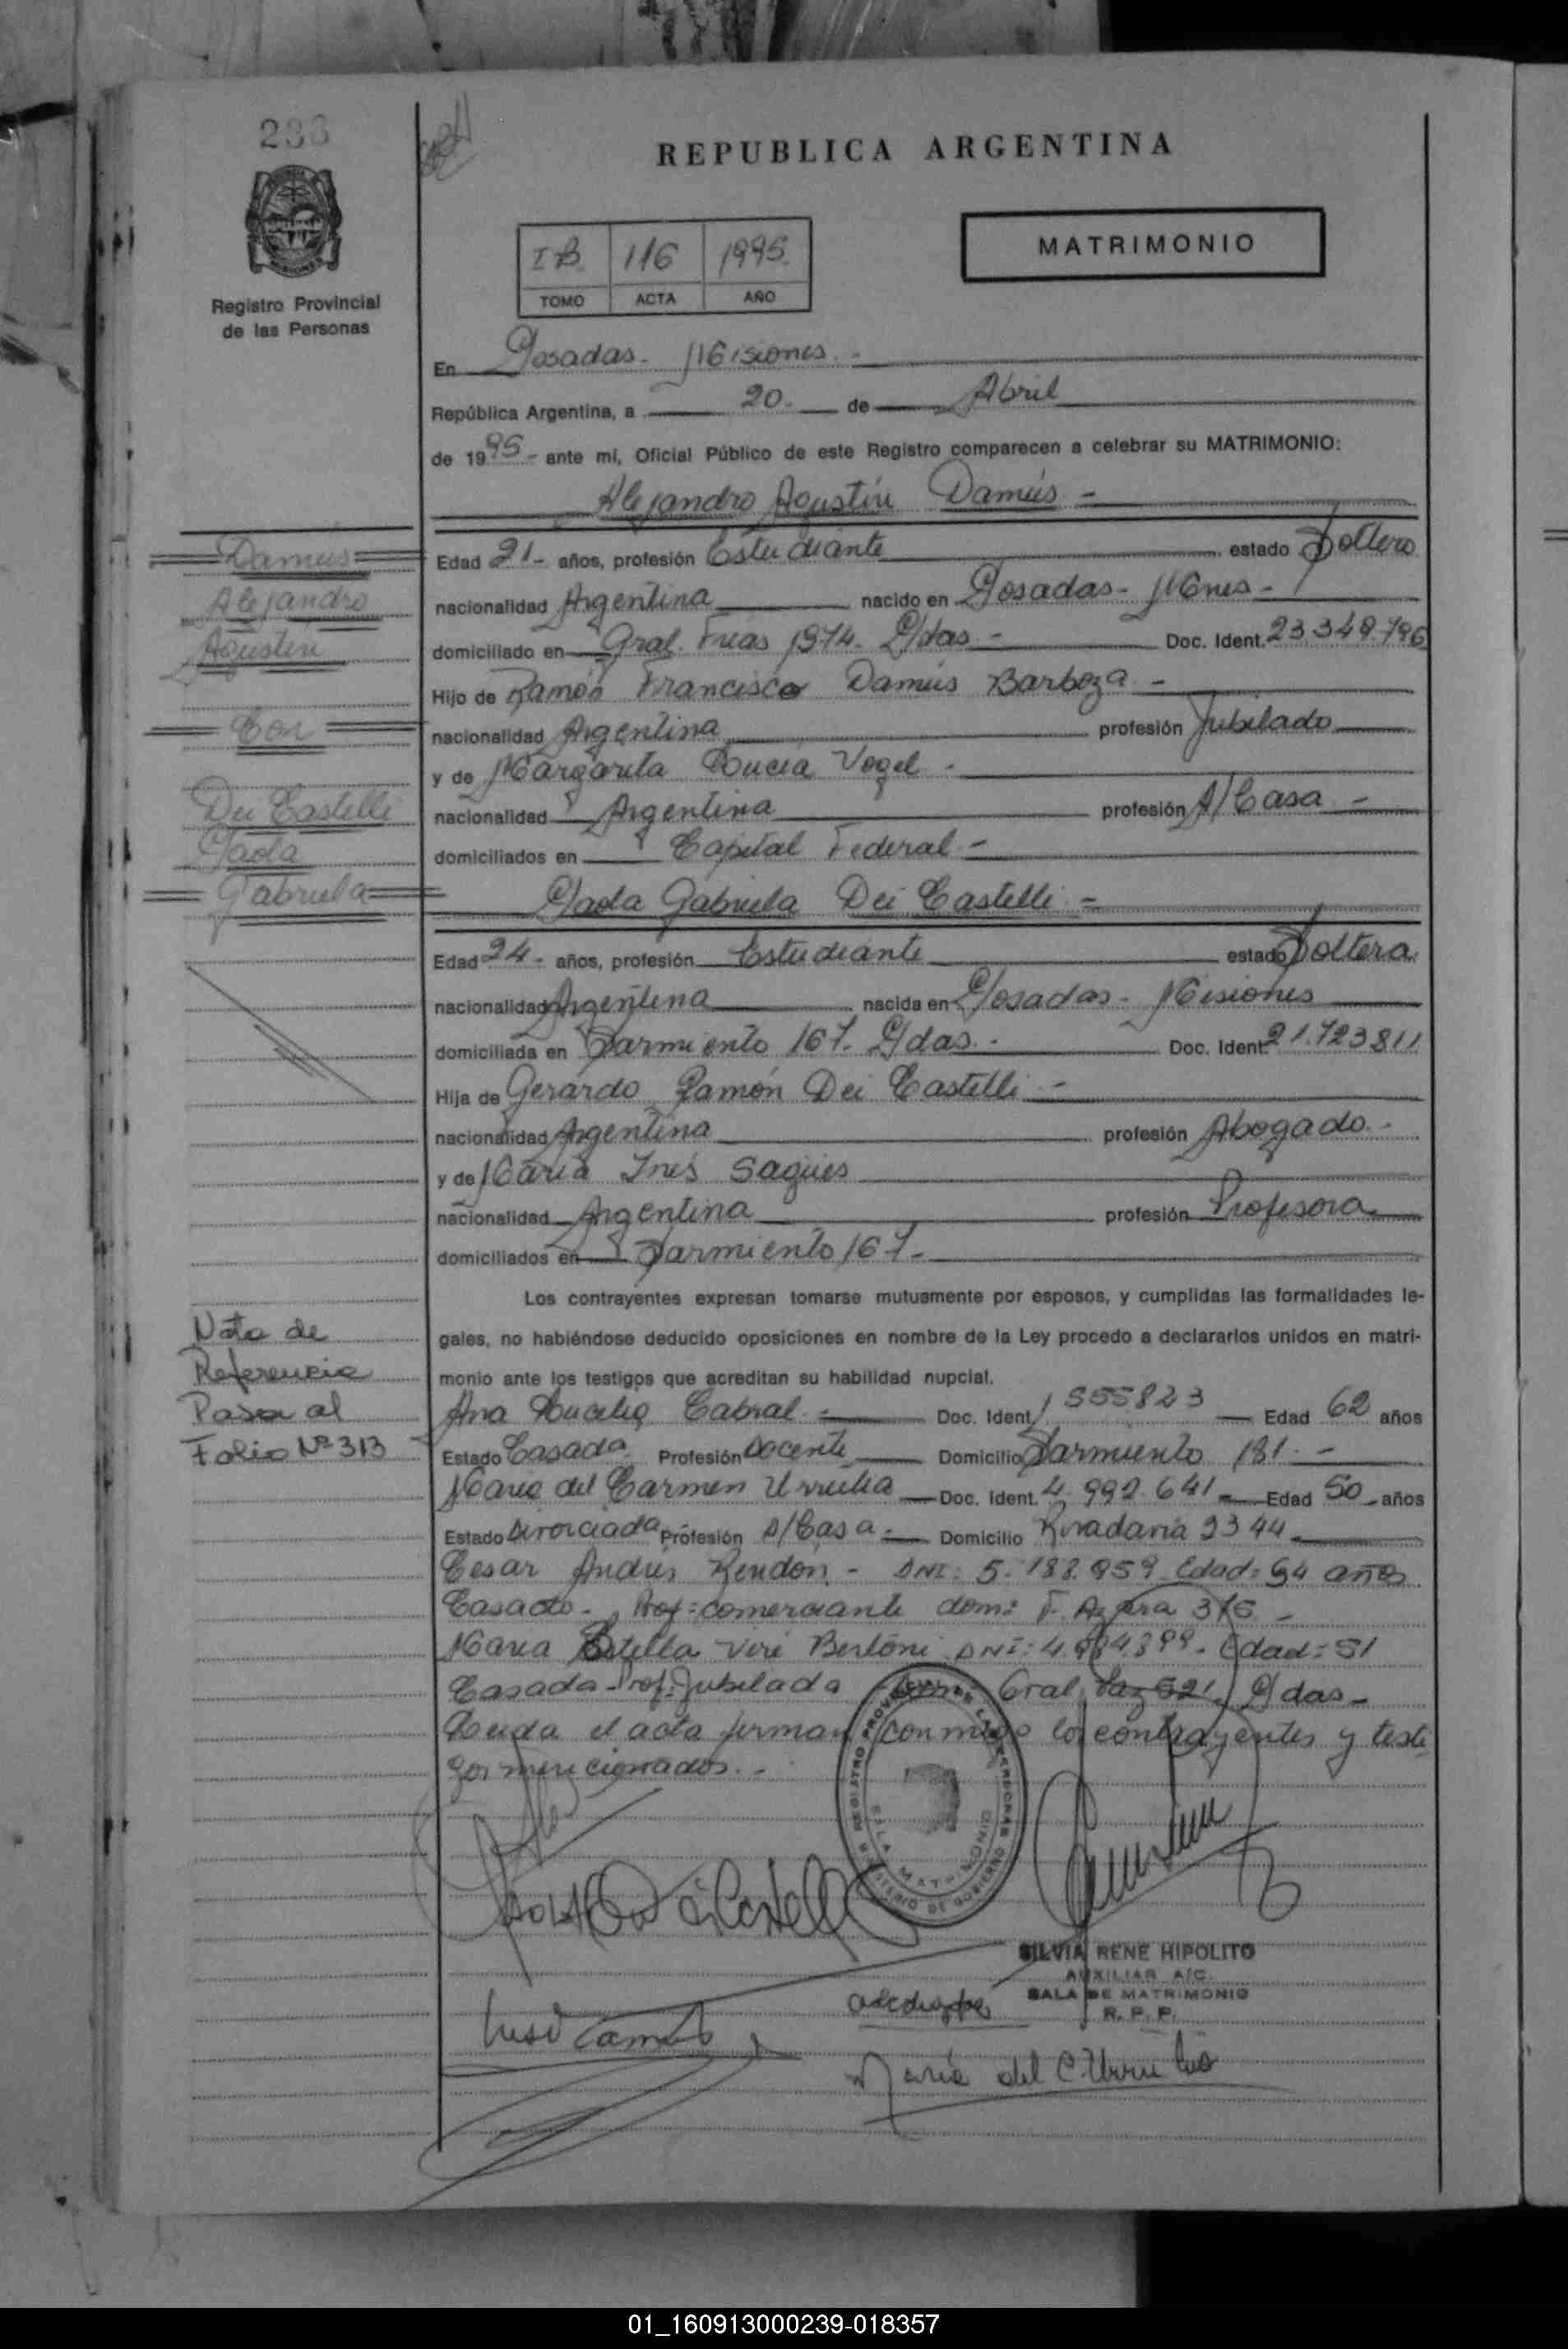 REPUBLICA ARGENTINA
MISIONES
Registro Provincial
de las Personas
I B. 116 1995.
TOMO ACTA AÑO
MATRIMONIO
En Posadas - Misiones. -
República Argentina, a 20. de Abril
de 1995 - ante mí, Oficial Público de este Registro comparecen a celebrar su MATRIMONIO:
Alejandro Agustín Damús -
Edad 21 - años, profesión Estudiante estado Soltero
nacionalidad Argentina nacido en Posadas - Mnes -
domiciliado en Gral. Frias 1974. P/das. - Doc. Ident. 23.349.796
Hijo de Ramón Francisco Damús Barboza -
nacionalidad Argentina profesión Jubilado
y de Margarita Lucía Vogel -
nacionalidad Argentina profesión A/Casa -
domiciliados en Capital Federal -
Paola Gabriela Dei Castelli -
Edad 24 - años, profesión Estudiante estado Soltera
nacionalidad Argentina nacida en Posadas - Misiones
domiciliada en Sarmiento 167. P/das. - Doc. Ident. 21.723811
Hija de Gerardo Ramón Dei Castelli -
nacionalidad Argentina profesión Abogado -
y de María Inés Sagües
nacionalidad Argentina profesión Profesora
domiciliados en Sarmiento 167 -
Los contrayentes expresan tomarse mutuamente por esposos, y cumplidas las formalidades le-
gales, no habiéndose deducido oposiciones en nombre de la Ley procedo a declararlos unidos en matri-
monio ante los testigos que acreditan su habilidad nupcial.
Ana Cabral - Doc. Ident. 1 555823 Edad 62 años
Estado Casada Profesión Docente Domicilio Sarmiento 181 -
Maria del Carmen Urrutia Doc. Ident. 4.992.641 Edad 50 años
Estado Divorciada Profesión A/Casa - Domicilio Rivadavia 2344
Cesar Andrés Rendon - DNI: 5.188.959 Edad: años
Casado - Prof: comerciante dom: F. Azara 376 -
Maria Estella Viré Bertoni DNI: Edad: 51
Casada Prof: Jubilada Gral. Paz 621 P/das -
Leida el acta firman conmigo los contrayentes y testi
gos mencionados. -
Damús
Alejandro
Agustín
Con
Dei Castelli
Paola
Gabriela
Nota de
Referencia
Pasa al
Folio Nº 313
REGISTRO PROVINCIAL DE LAS PERSONAS
SALA MATRIMONIO
MINISTERIO DE GOBIERNO
SILVIA RENE HIPOLITO
AUXILIAR A/C.
SALA DE MATRIMONIO
R. P. P.
María del C. Urrutia
01_160913000239-018357